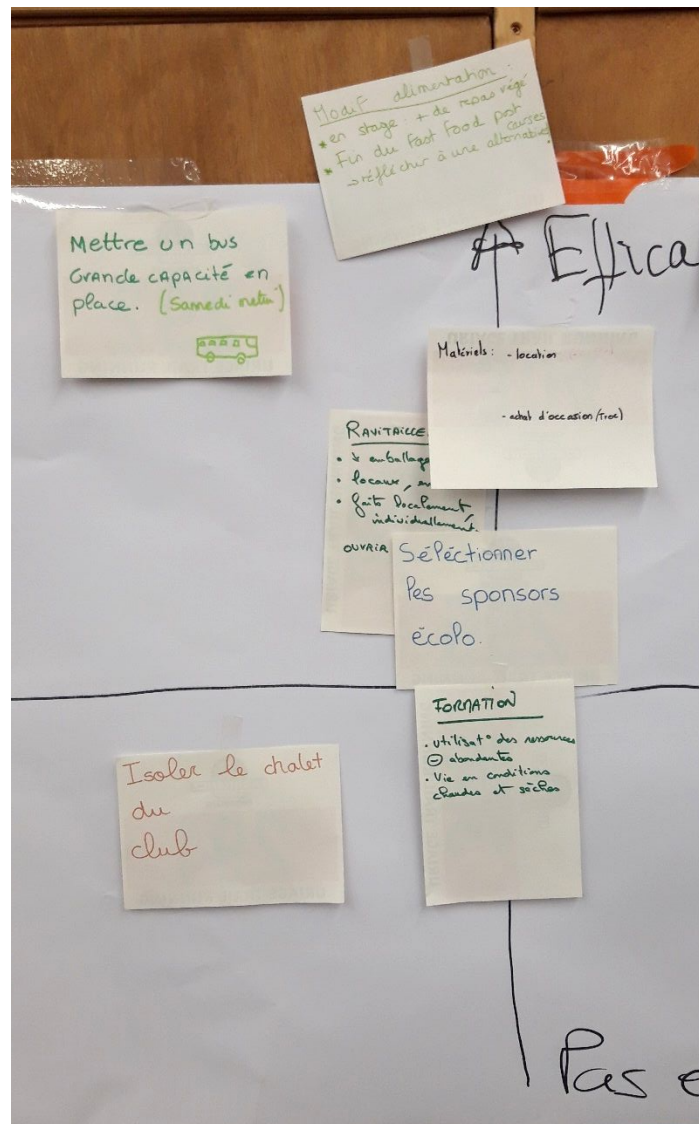 Modif alimentation :
* en stage : + de repas végé
* Fin du fast food post courses
→ réfléchir à une alternative.
Mettre un bus
Grande capacité en
place. (Samedi matin)
Effica
Matériels : - location
- achat d'occasion (Troc)
RAVITAILLE
• ↓ emballage
• locaux,
• faits localement,
individuellement.
OUVRIR
Séléctionner
les sponsors
écolo.
FORMATION
• utilisat° des ressources
⊖ abondantes
• Vie en conditions
chaudes et sèches
Isoler le chalet
du
club
Pas e